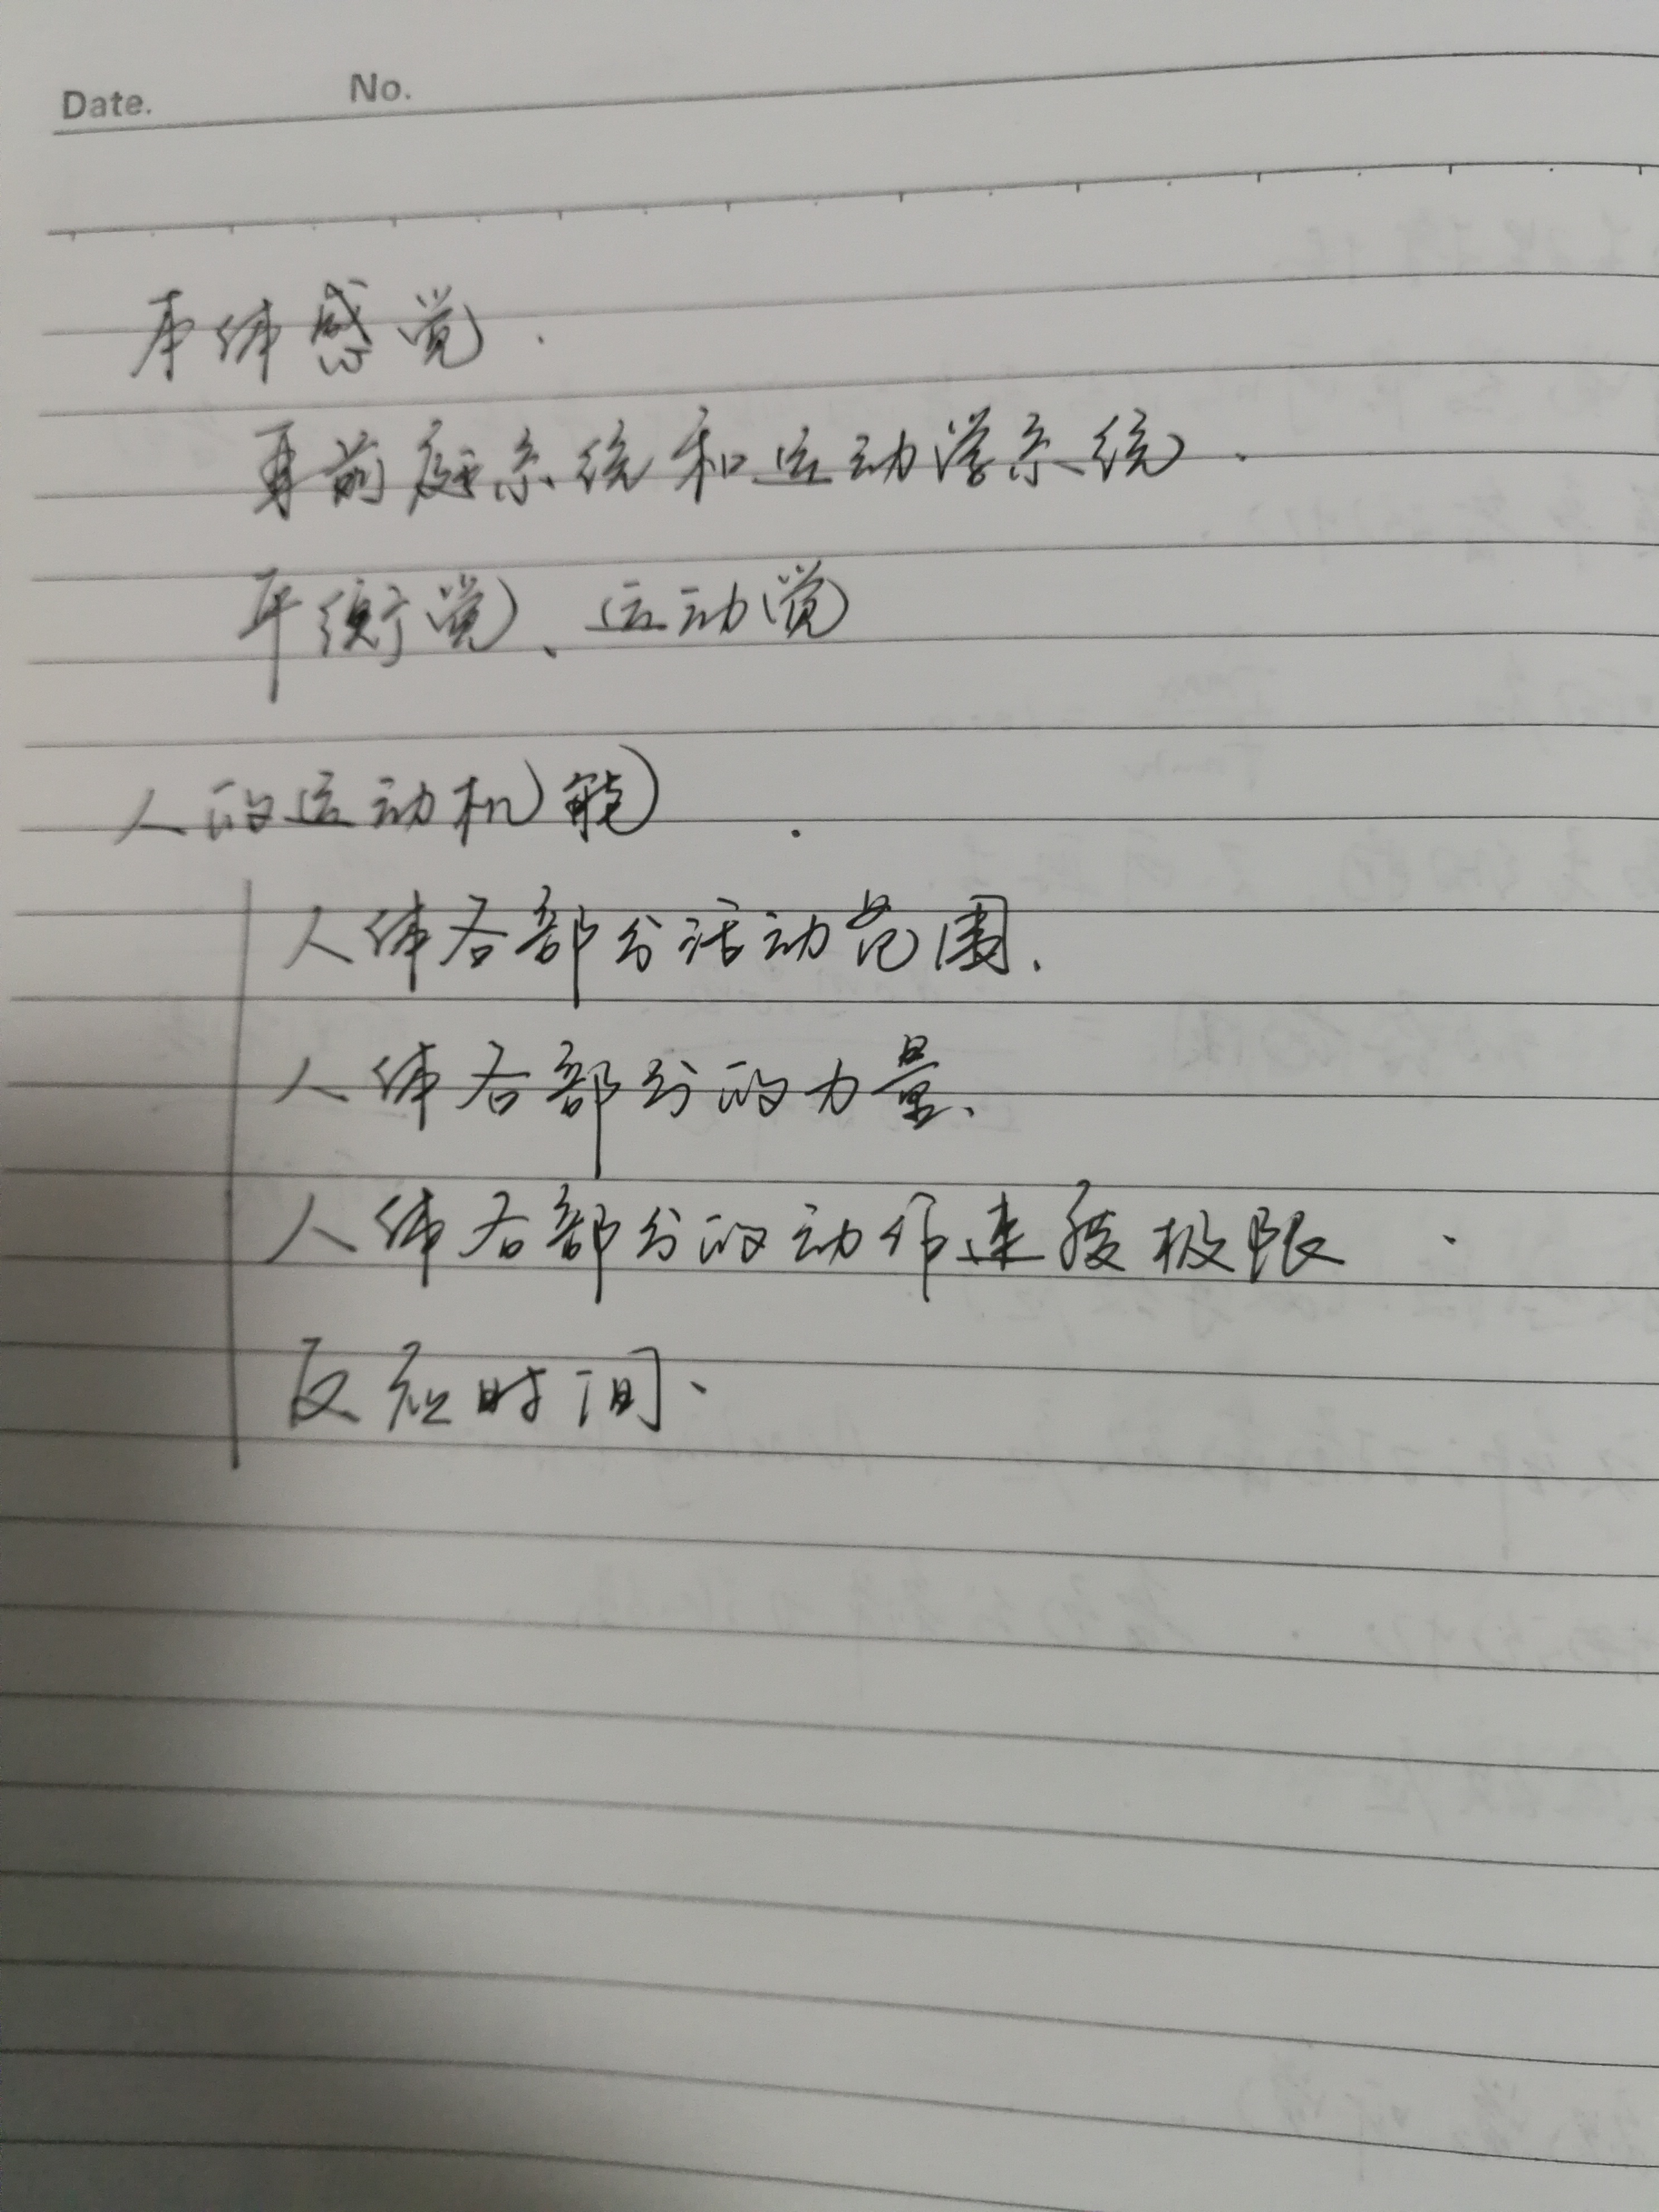 Date. No.
本体感觉.
耳前庭系统和运动觉系统.
平衡觉、运动觉
人的运动机能
人体各部分活动范围.
人体各部分的力量、
人体各部分的动作速度极限
反应时间、